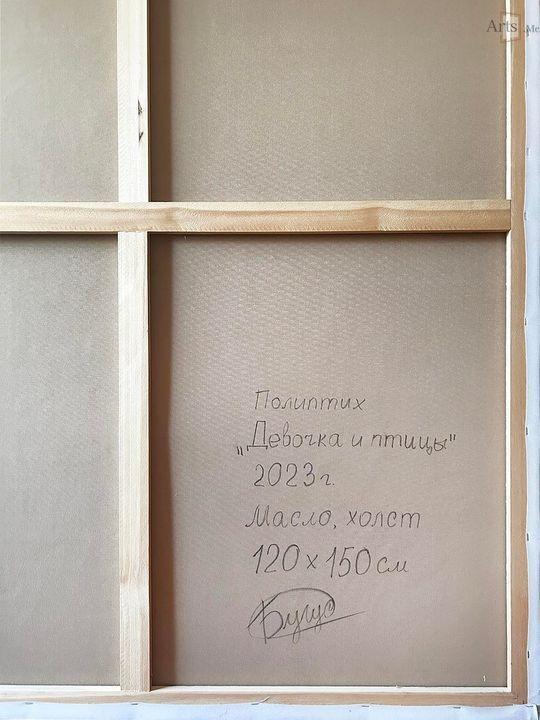 Arts
Полиптих
„Девочка и птицы"
2023г.
Масло, холст
120 x 150 см